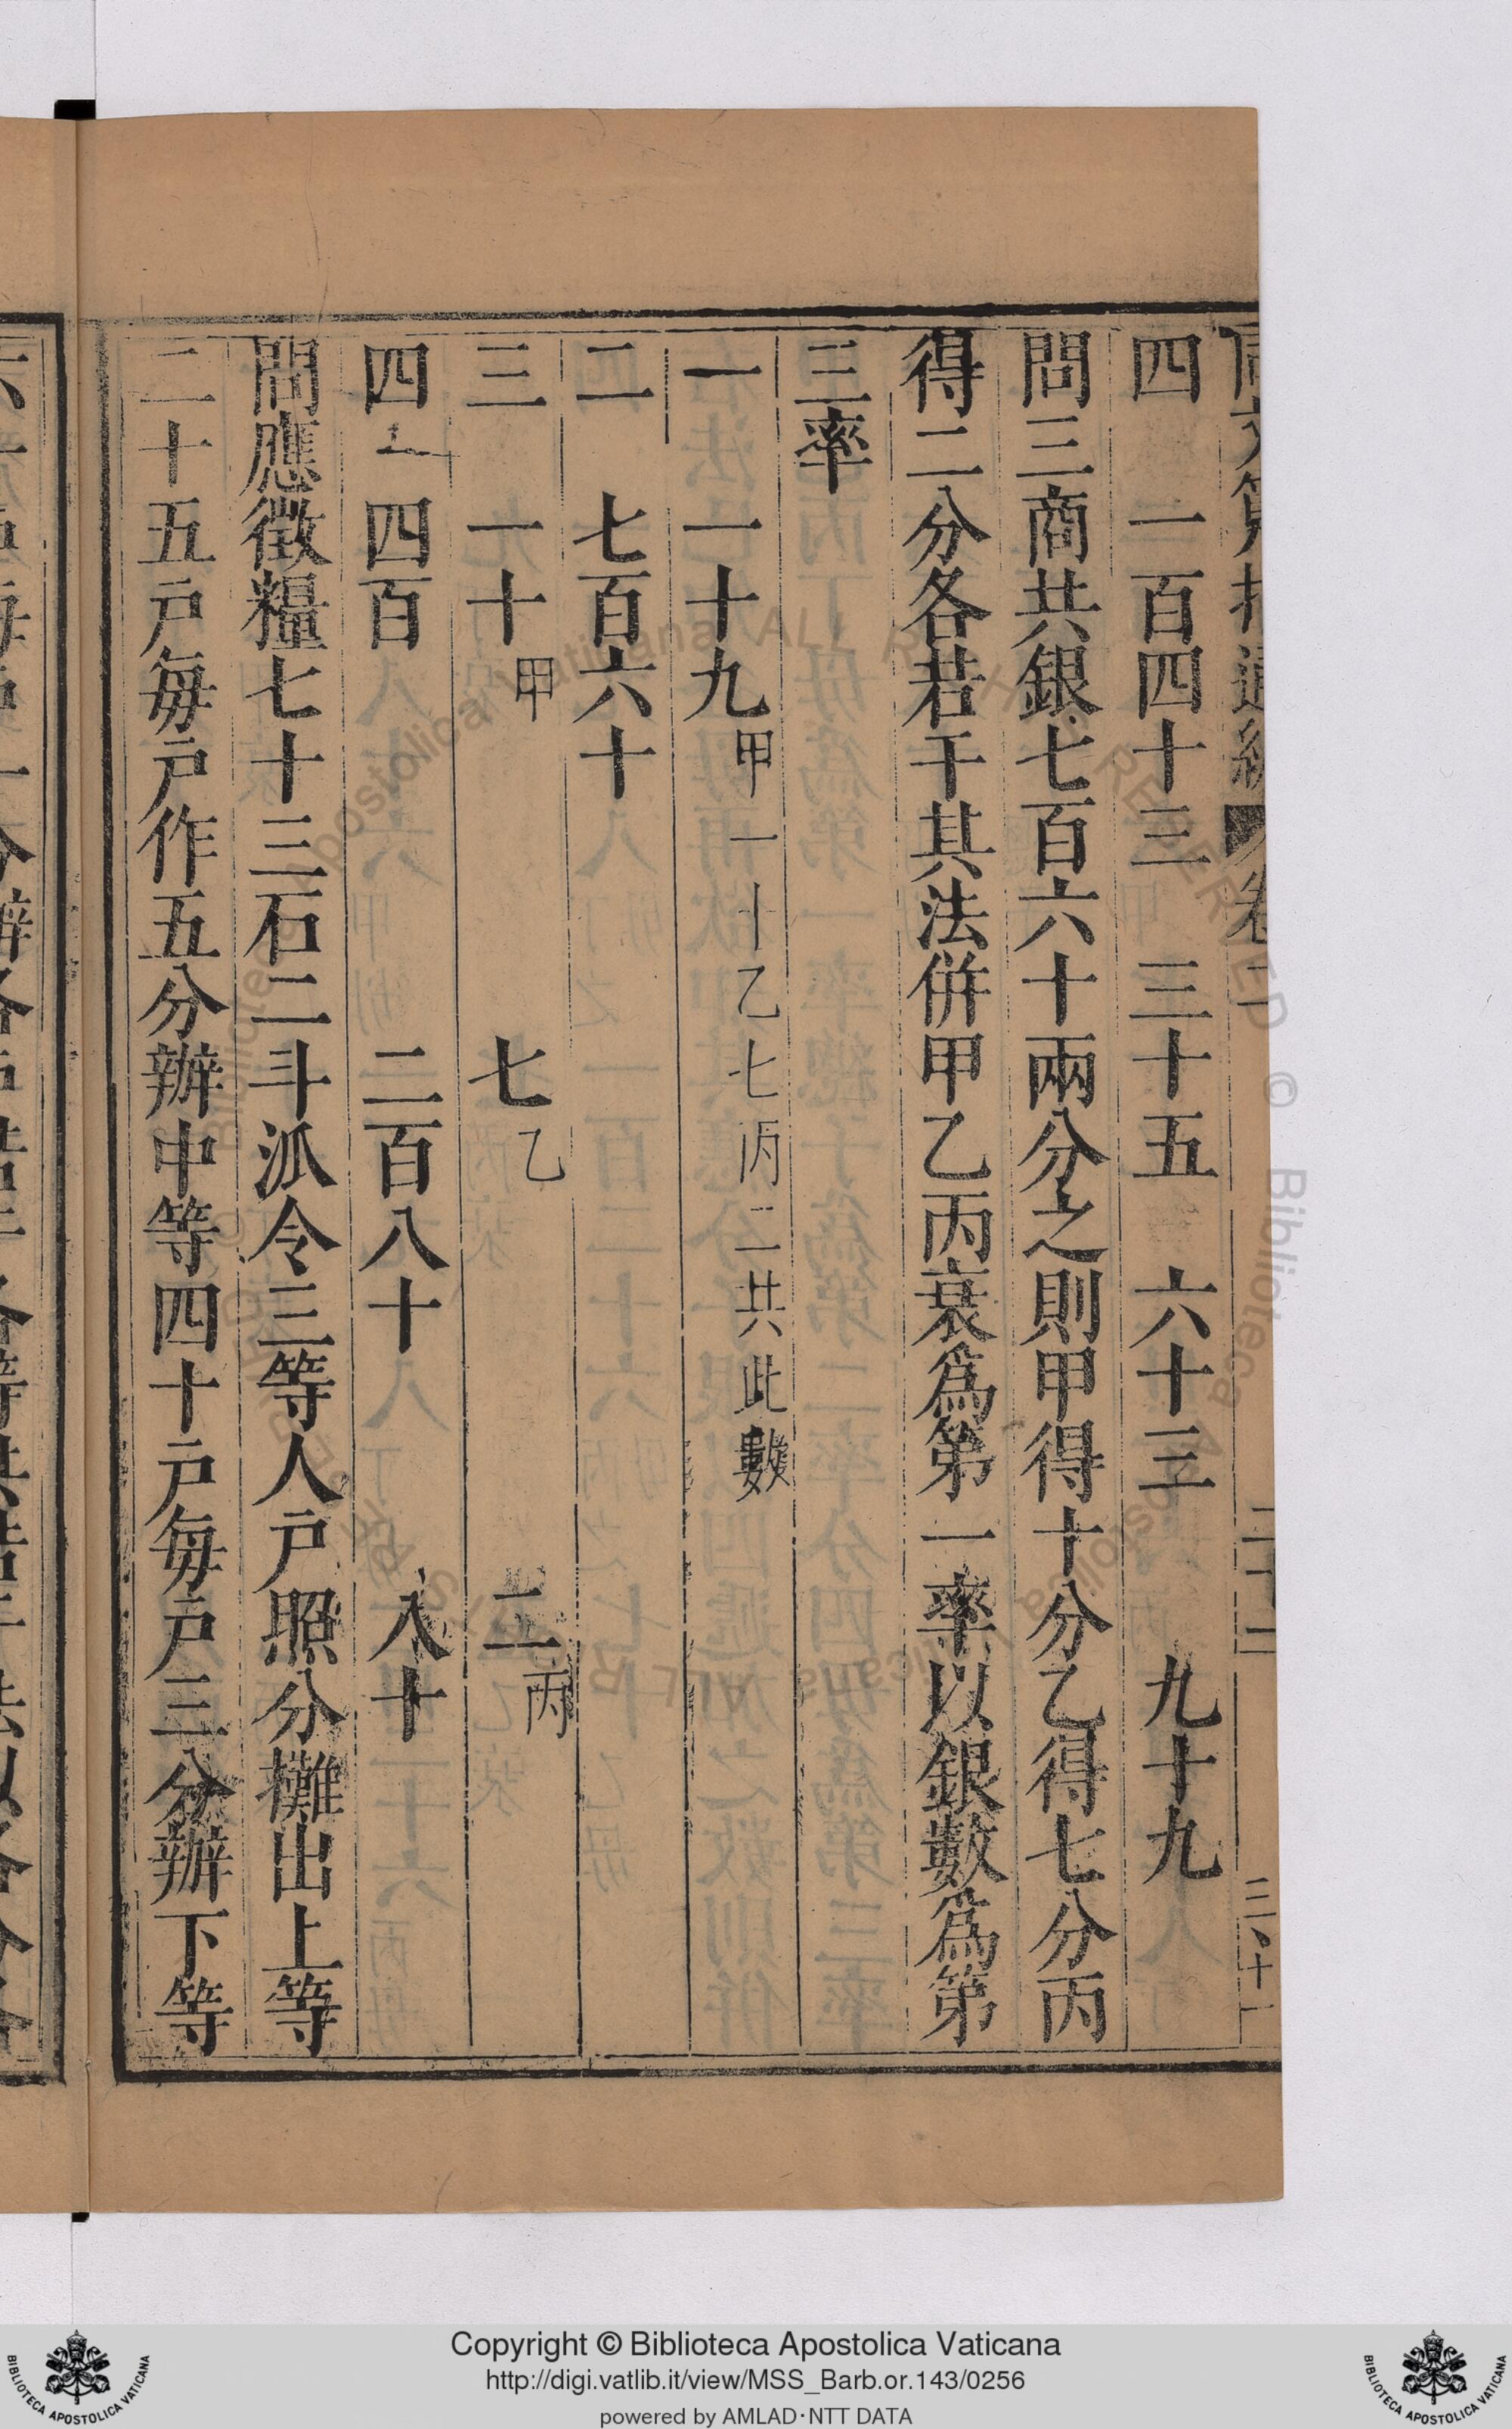 四　二百四十三　三十五　六十三　九十九
問三商共銀七百六十兩分之則甲得十分乙得七分丙
得二分各若干其法併甲乙丙衰爲第一率以銀數爲第
三率
一　一十九甲一十乙七丙二共此數
二　七百六十
三　一十甲　七乙　二丙
四　四百　二百八十　八十
問應徵糧七十三石二斗派令三等人戸照分攤出上等
二十五戸每戸作五分辦中等四十戸每戸三分辦下等
Copyright © Biblioteca Apostolica Vaticana
http://digi.vatlib.it/view/MSS_Barb.or.143/0256
powered by AMLAD·NTT DATA
BIBLIOTECA APOSTOLICA VATICANA
BIBLIOTECA APOSTOLICA VATICANA